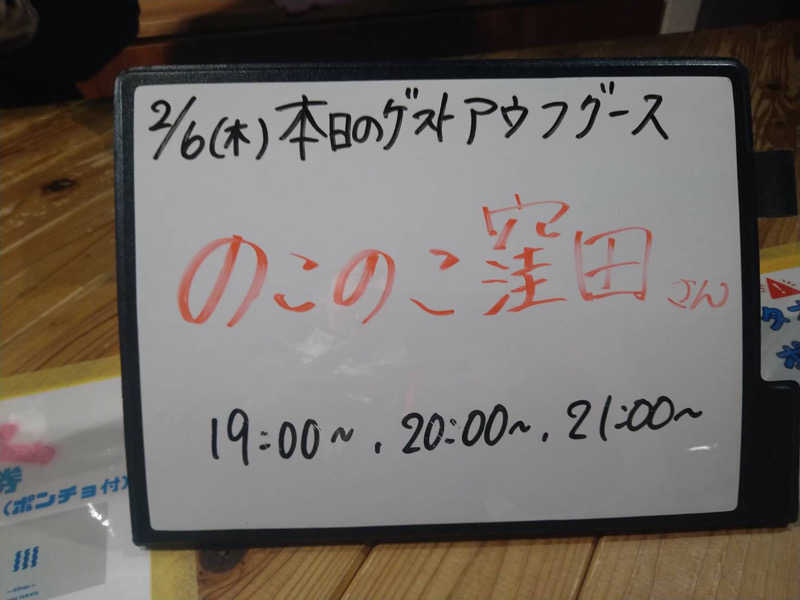 2/6(木)本日のゲストアウフグース
のこのこ窪田さん
19:00~、20:00~、21:00~
券
(ポンチョ付)